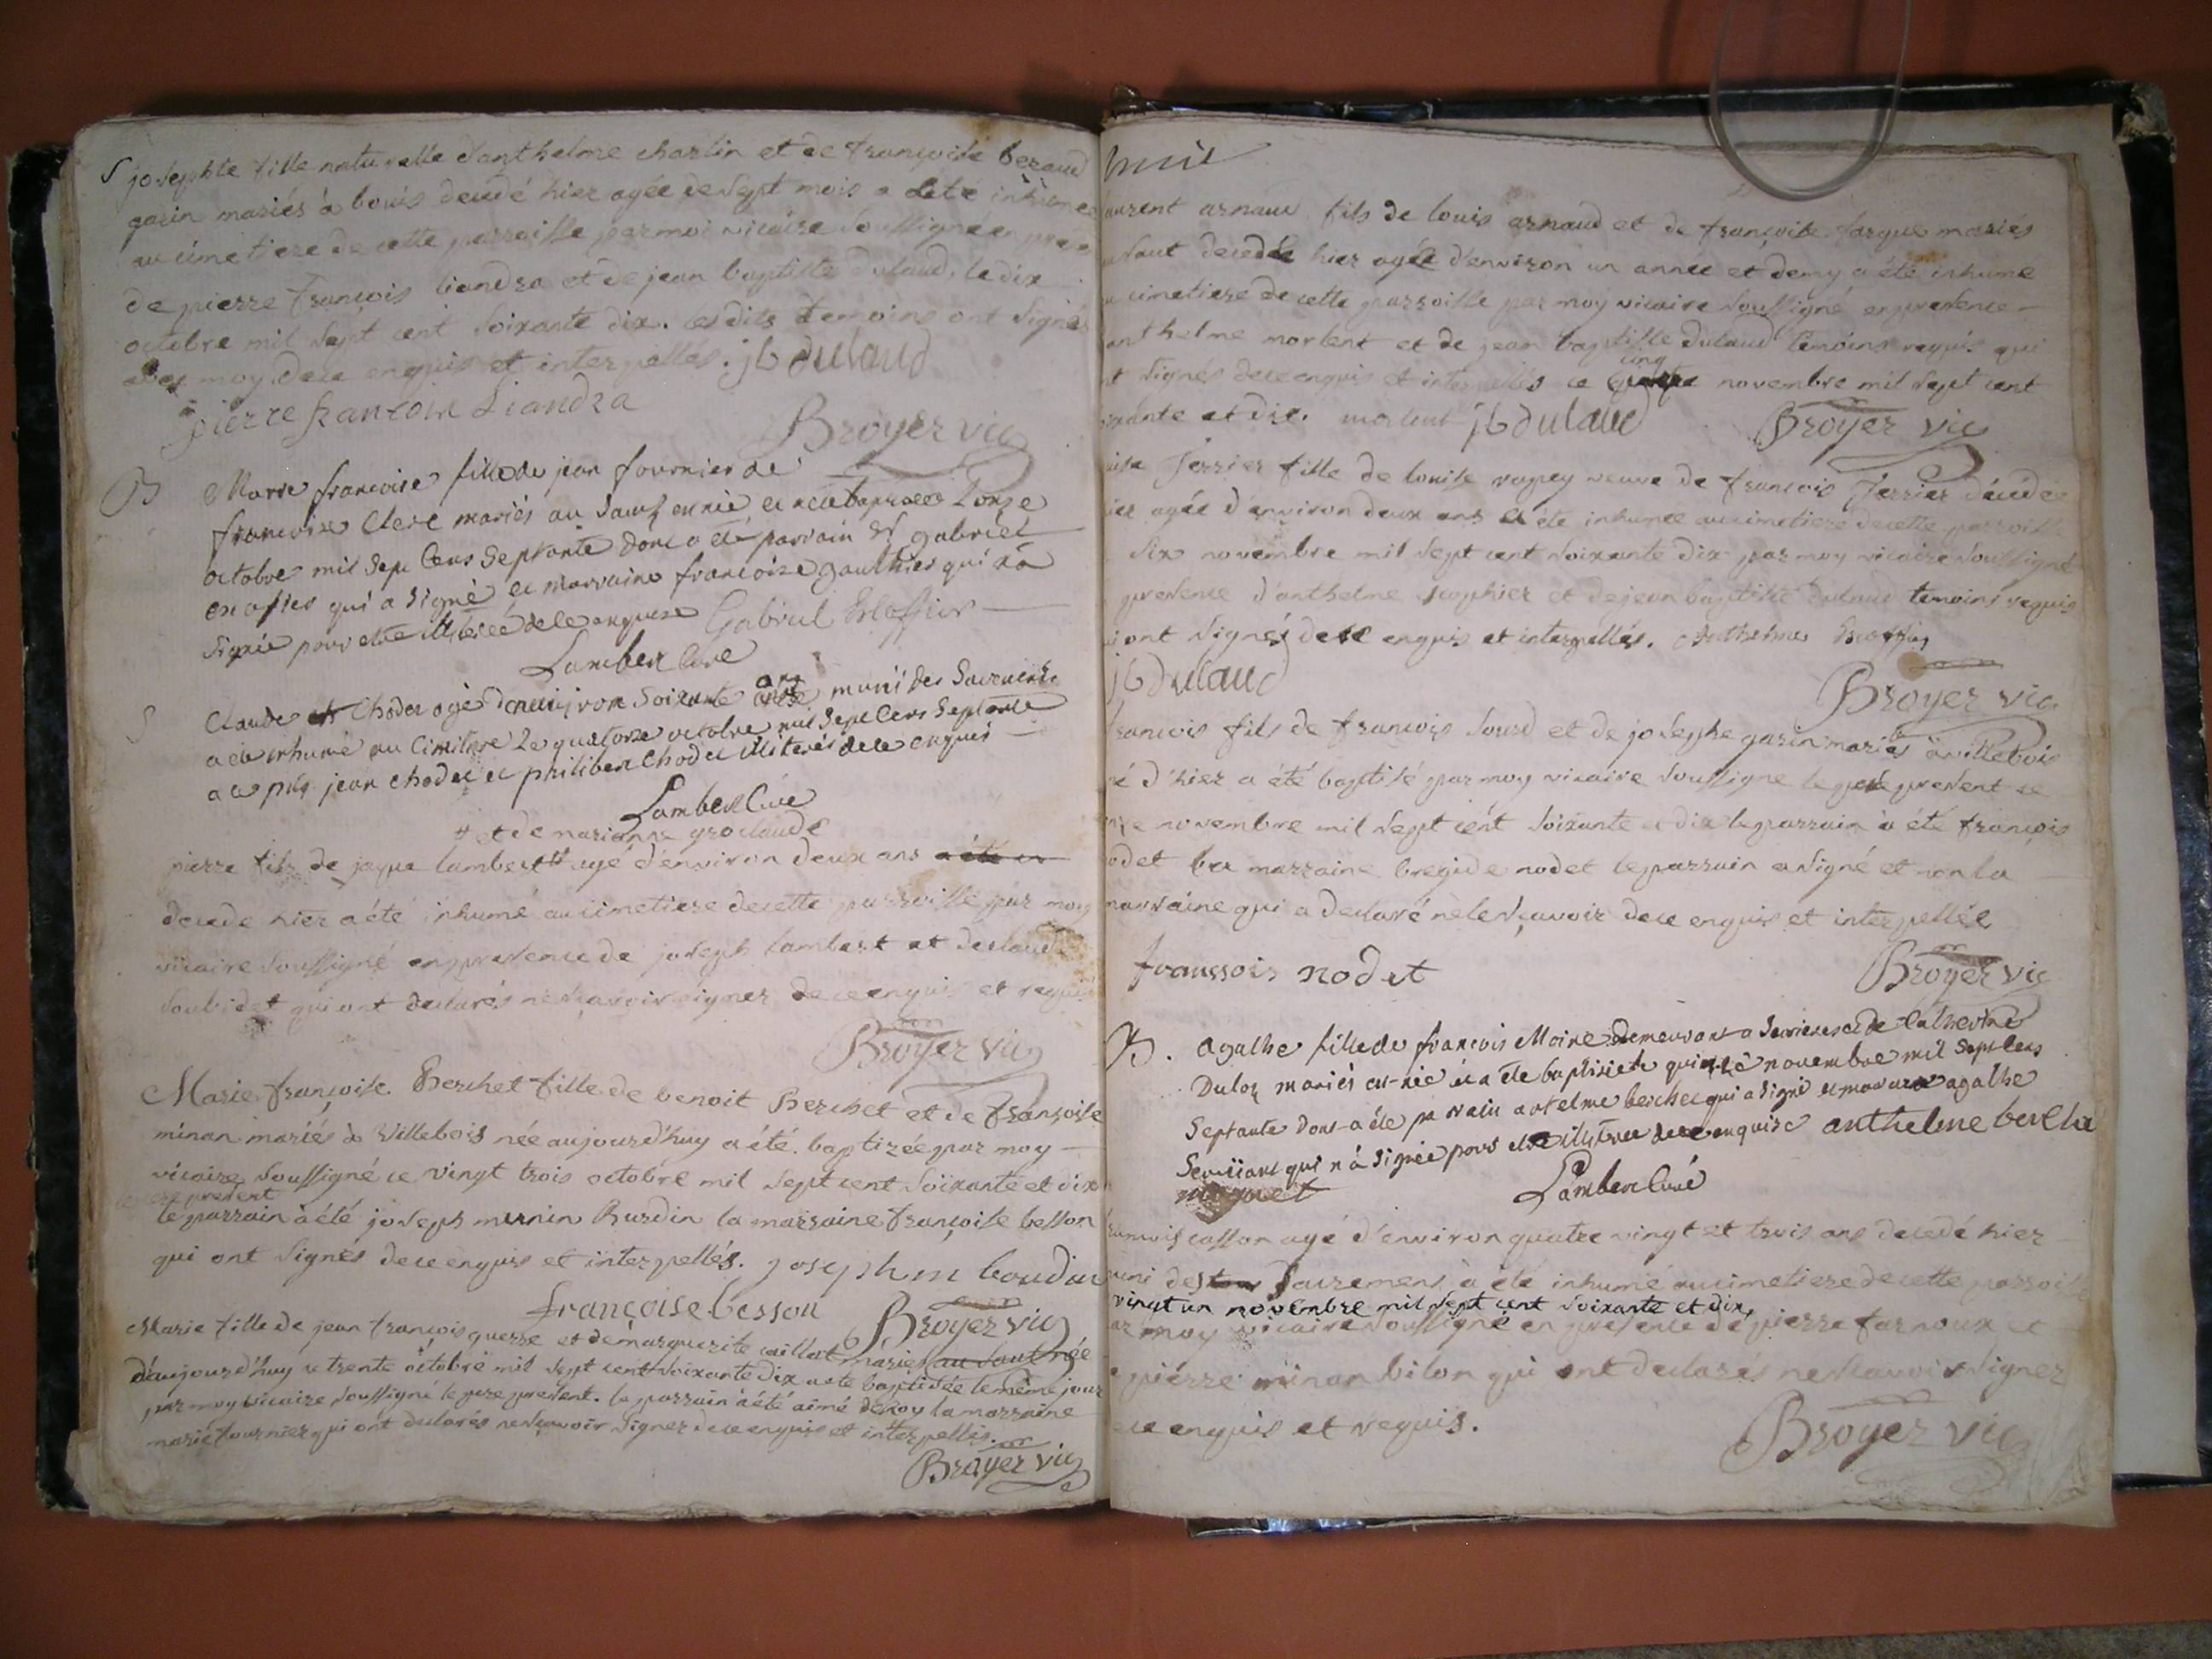 S josephte fille naturelle d'anthelme charlin et de françoise beraud
garin mariés à bouis decedé hier agée de sept mois a été inhumee
au cimetiere de cette parroisse par moi vicaire soussigné en
de pierre françois liandra et de jean baptiste dulaud, le dix
octobre mil sept cent soixante dix. lesdits temoins ont signés
avec moy de ce enquis et interpellés. jb dulaud
pierre françois Liandra
Broyer vic
B Marie françoise fille de jean fournier de
francoise Clerc mariés au Sault est née et a été baptisée L'onze
octobre mil sept Cens Septante dont a été parrain Sr gabriel
excofier qui a Signé et marraine françoise gauthier qui n'a
Signée pour etre illiterée de ce enquise Gabriel Excoffier
Lambert Curé
S Claude Chodet agé d'environ Soixante ans muni des Sacremens
a été inhumé au Cimitiere Le quatorze octobre mil Sept Cens Septante
jean chodet et philibert Chodet illiterés de ce enquis
Lambert Curé
# et de marianne groclaude
pierre fils de jaque lambert # agé d'environ deux ans a été in
decede hier a été inhumé au cimetiere de cette parroisse par moy
vicaire soussigné en presence de joseph lambert et de claude
soubidet qui ont declarés ne scavoir signer de ce enquis et requis
Broyer vic
Marie françoise Berchet fille de benoit Berchet et de françoise
minan mariés à Villebois née aujourd'huy a été baptizée par moy
vicaire soussigné ce vingt trois octobre mil sept cent soixante et dix
le pere present
le parrain a été joseph marin Burdin la marraine françoise besson
qui ont signés de ce enquis et interpellés. joseph m bourdin
françoise besson
Broyer vic
Marie fille de jean françois guerre et de marguerite caillat mariés au Sault née
d'aujourd'huy ce trente octobre mil sept cent soixante dix a été baptisée le même jour
par moy vicaire soussigné le pere present. le parrain a été aimé deroy la marraine
marie fournier qui ont declarés ne sçavoir signer de ce enquis et interpellés.
Broyer vic
aurent arnaud fils de louis arnaud et de françoise mariés
sault decedé hier agé d'environ un année et demy a été inhumé
cimetiere de cette parroisse par moy vicaire soussigné en presence
anthelme morlent et de jean baptiste dulaud temoins requis qui
cinq
nt signés de ce enquis et interpellés ce novembre mil sept cent
ixante et dix. morlent jb dulaud Broyer vic
uise Perrier fille de louise rapey veuve de françois Perrier décédée
ier agée d'environ deux ans a été inhumée au cimetiere de cette parroisse
six novembre mil sept cent soixante dix par moy vicaire soussigné
presence d'anthelme et de jean baptiste dulaud temoins requis
i ont signés de ce enquis et interpellés. Anthelme
jb dulaud
Broyer vic
françois fils de françois sourd et de josephe garin mariés à villebois
né d'hier a été baptisé par moy vicaire soussigné le pere present ce
novembre mil sept cént soixante et dix le parrain a été françois
odet la marraine bregide nodet le parrain a signé et non la
marraine qui a declaré ne le sçavoir de ce enquis et interpellée
franssois nodet
Broyer vic
B. Agathe fille de francois Moine demeurant a et de Catherine
mariés est née et a été baptisée le quinze novembre mil Sept Cens
Septante dont a été parrain antelme berchet qui a Signé et marraine agathe
qui n'a Signée pour etre illiterée de ce enquise anthelme berche
Lambert Curé
rancois casson agé d'environ quatre vingt et trois ans decedé hier
uni des sacremens a été inhumé au cimetiere de cette parroisse
vingt un novembre mil sept cent soixante et dix,
ar moy vicaire soussigné en presence de pierre farnoux et
e pierre minan bilon qui ont declarés ne scavoir signer
ce enquis et requis.
Broyer vic